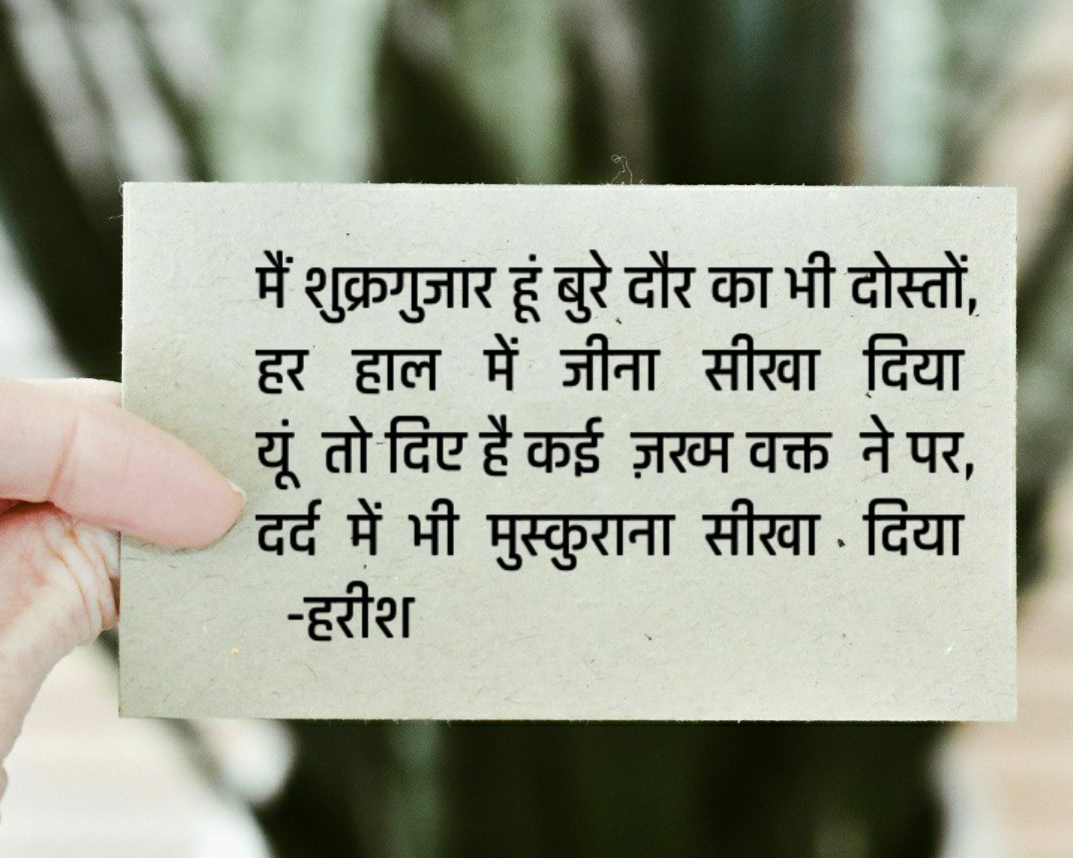 मैं शुक्रगुजार हूं बुरे दौर का भी दोस्तों,
हर हाल में जीना सीखा दिया
यूं तो दिए है कई ज़ख्म वक्त ने पर,
दर्द में भी मुस्कुराना सीखा दिया
-हरीश